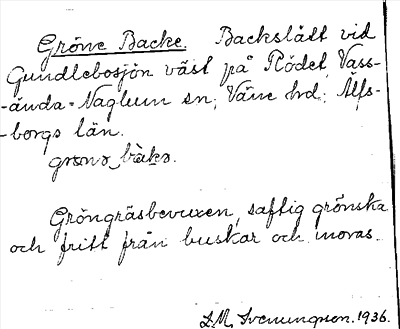 Gröne Backe. Backslätt vid
Gundlebosjön väst på Rödet, Vass-
-ända-Naglum sn; Väne hrd; Älfs-
-borgs län.
grønə bàkə.
Gröngräsbevuxen, saftig grönska
och fritt från buskar och moras.
L.M. Svenungson. 1936.